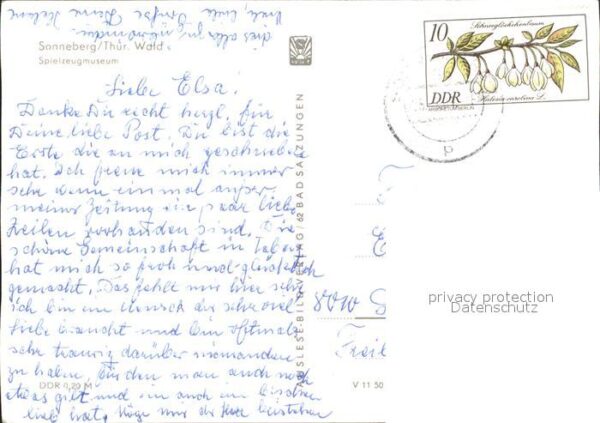 dies alles gut überwinden.
Viele, liebe Grüße Deine Helene
Sonneberg/Thür. Wald
Spielzeugmuseum
Liebe Elsa!
Danke Dir recht herzl. für
Deine liebe Post. Du bist die
Erste die an mich geschrieben
hat. Ich freue mich immer
sehr wenn einmal außer
meiner Zeitung ein paar liebe
Zeilen vorhanden sind. Die
schöne Gemeinschaft in
hat mich so froh und glücklich
gemacht. Das fehlt mir hier sehr
ich bin ein Mensch der sehr viel
Liebe braucht und bin oftmals
sehr traurig darüber niemanden
zu haben, für den man auch noch
etwas gilt und ein auch ein bischen
lieb hat. Möge mir der Herr beistehen
DDR 0,20 M
V 11 50
AUSLESE-BILD-VERLAG / 62 BAD SALZUNGEN
10
Schneeglöckchenbaum
DDR
Halesia carolina L.
p
E
8010
Freil
privacy protection
Datenschutz